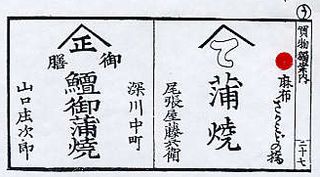 う
買物獨案内
二十七
麻布
の橋
て
蒲燒
尾張屋藤兵衛
深川中町
正
御膳
鱣御蒲燒
山口庄次郎